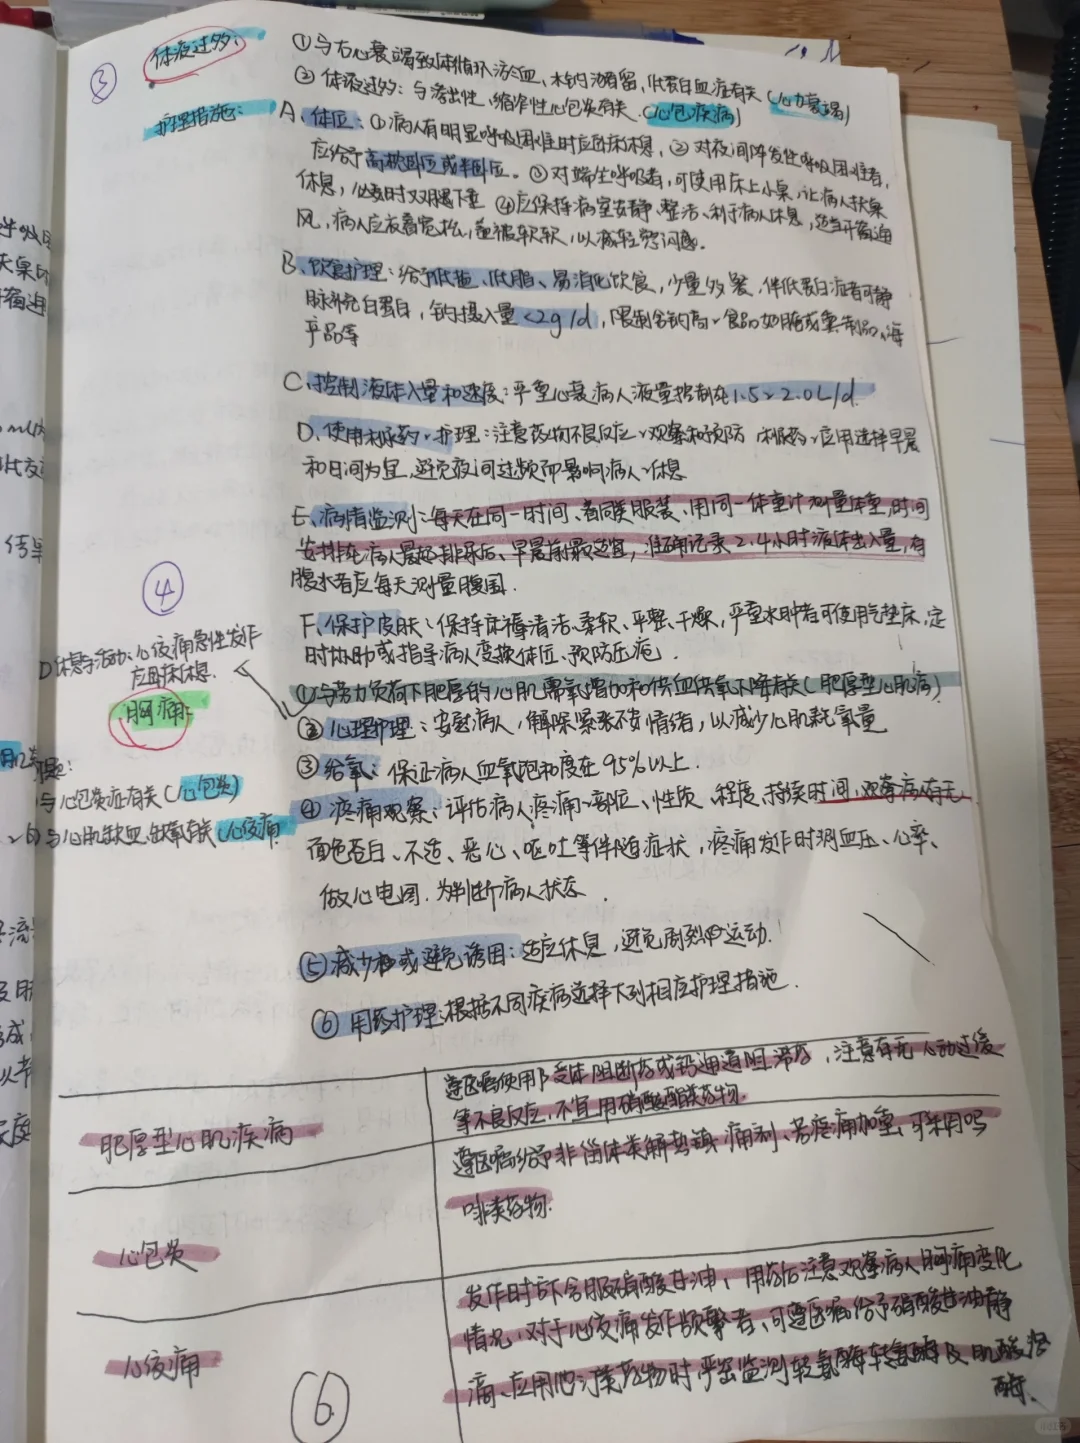 ③ 体液过多:
①与右心衰竭致体循环淤血、水钠潴留,低蛋白血症有关(心力衰竭)
②体液过多:与渗出性、缩窄性心包炎有关.(心包疾病)
护理措施:
A、体位:①病人有明显呼吸困难时应卧床休息,②对夜间阵发性呼吸困难者,
应给予高枕卧位或半卧位。③对端坐呼吸者,可使用床上小桌,让病人扶桌
休息,必要时双腿下垂 ④应保持病室安静、整洁、利于病人休息,适当开窗通
风,病人应衣着宽松,盖被软,以减轻憋闷感。
B、饮食护理:给予低盐、低脂、易消化饮食,少量多餐,伴低蛋白症者可静
脉补充白蛋白,钠摄入量<2g/d,限制含钠高食品如腌或熏制品、海
产品等
C、控制液体入量和速度:严重心衰病人液量控制在1.5~2.0L/d.
D、使用利尿药护理:注意药物不良反应观察和预防 利尿药应用选择早晨
和日间为宜,避免夜间过频而影响病人休息
E、病情监测:每天在同一时间、着同类服装、用同一体重计测量体重,时间
安排在病人晨起排尿后、早晨前最适宜,准确记录2.4小时液体出入量,有
腹水者应每天测量腹围.
F、保护皮肤:保持床褥清洁、柔软、平整、干燥,严重水肿者可使用气垫床,定
时协助或指导病人变换体位、预防压疮.
④
D休息与活动:心绞痛急性发作
应卧床休息.
胸痛:
问题:
与心包炎症有关(心包炎)
与心肌缺血、缺氧有关(心绞痛
①与劳力负荷下肥厚的心肌需氧增加和供血供氧下降有关(肥厚型心肌病)
②心理护理:安慰病人,解除紧张不安情绪,以减少心肌耗氧量
③给氧:保证病人血氧饱和度在95%以上.
④疼痛观察:评估病人疼痛部位、性质、程度、持续时间,观察病人有无
面色苍白、不适、恶心、呕吐等伴随症状,疼痛发作时测血压、心率、
做心电图.为判断病人状态.
⑤减少或避免诱因:适应休息,避免剧烈运动.
⑥用药护理:根据不同疾病选择下列相应护理措施.
肥厚型心肌疾病
遵医嘱使用β受体阻断药或钙通道阻滞药,注意有无心动过缓
等不良反应,不宜用硝酸酯类药物.
心包炎
遵医嘱给予非甾体类解热镇痛剂、若疼痛加重,可采用吗
啡类药物.
心绞痛
发作时舌下含服硝酸甘油、用药后注意观察病人胸痛变化
情况,对于心绞痛发作频繁者、可遵医嘱给予硝酸甘油静
滴、应用他汀类药物时严密监测转氨酶及肌酸激
酶.
6